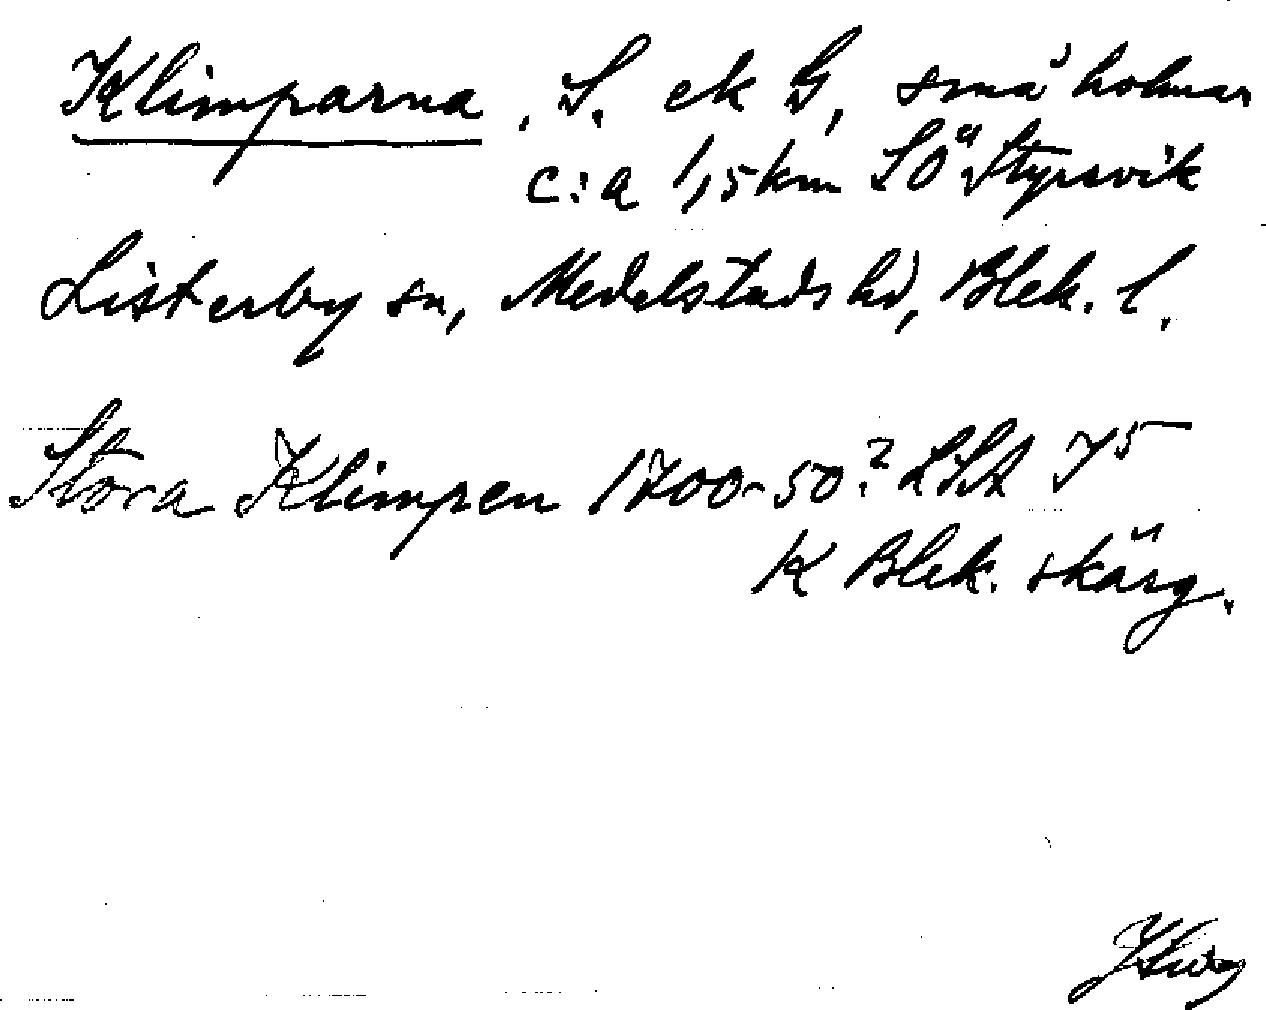 Klimparna, S. ek G, små holmar
c:a 1,5 km SÖ Styrsvik
Listerby sn, Medelstads hd, Blek. l.
Stora Klimpen 1700-50? LSA I 5
K Blek. skärg.